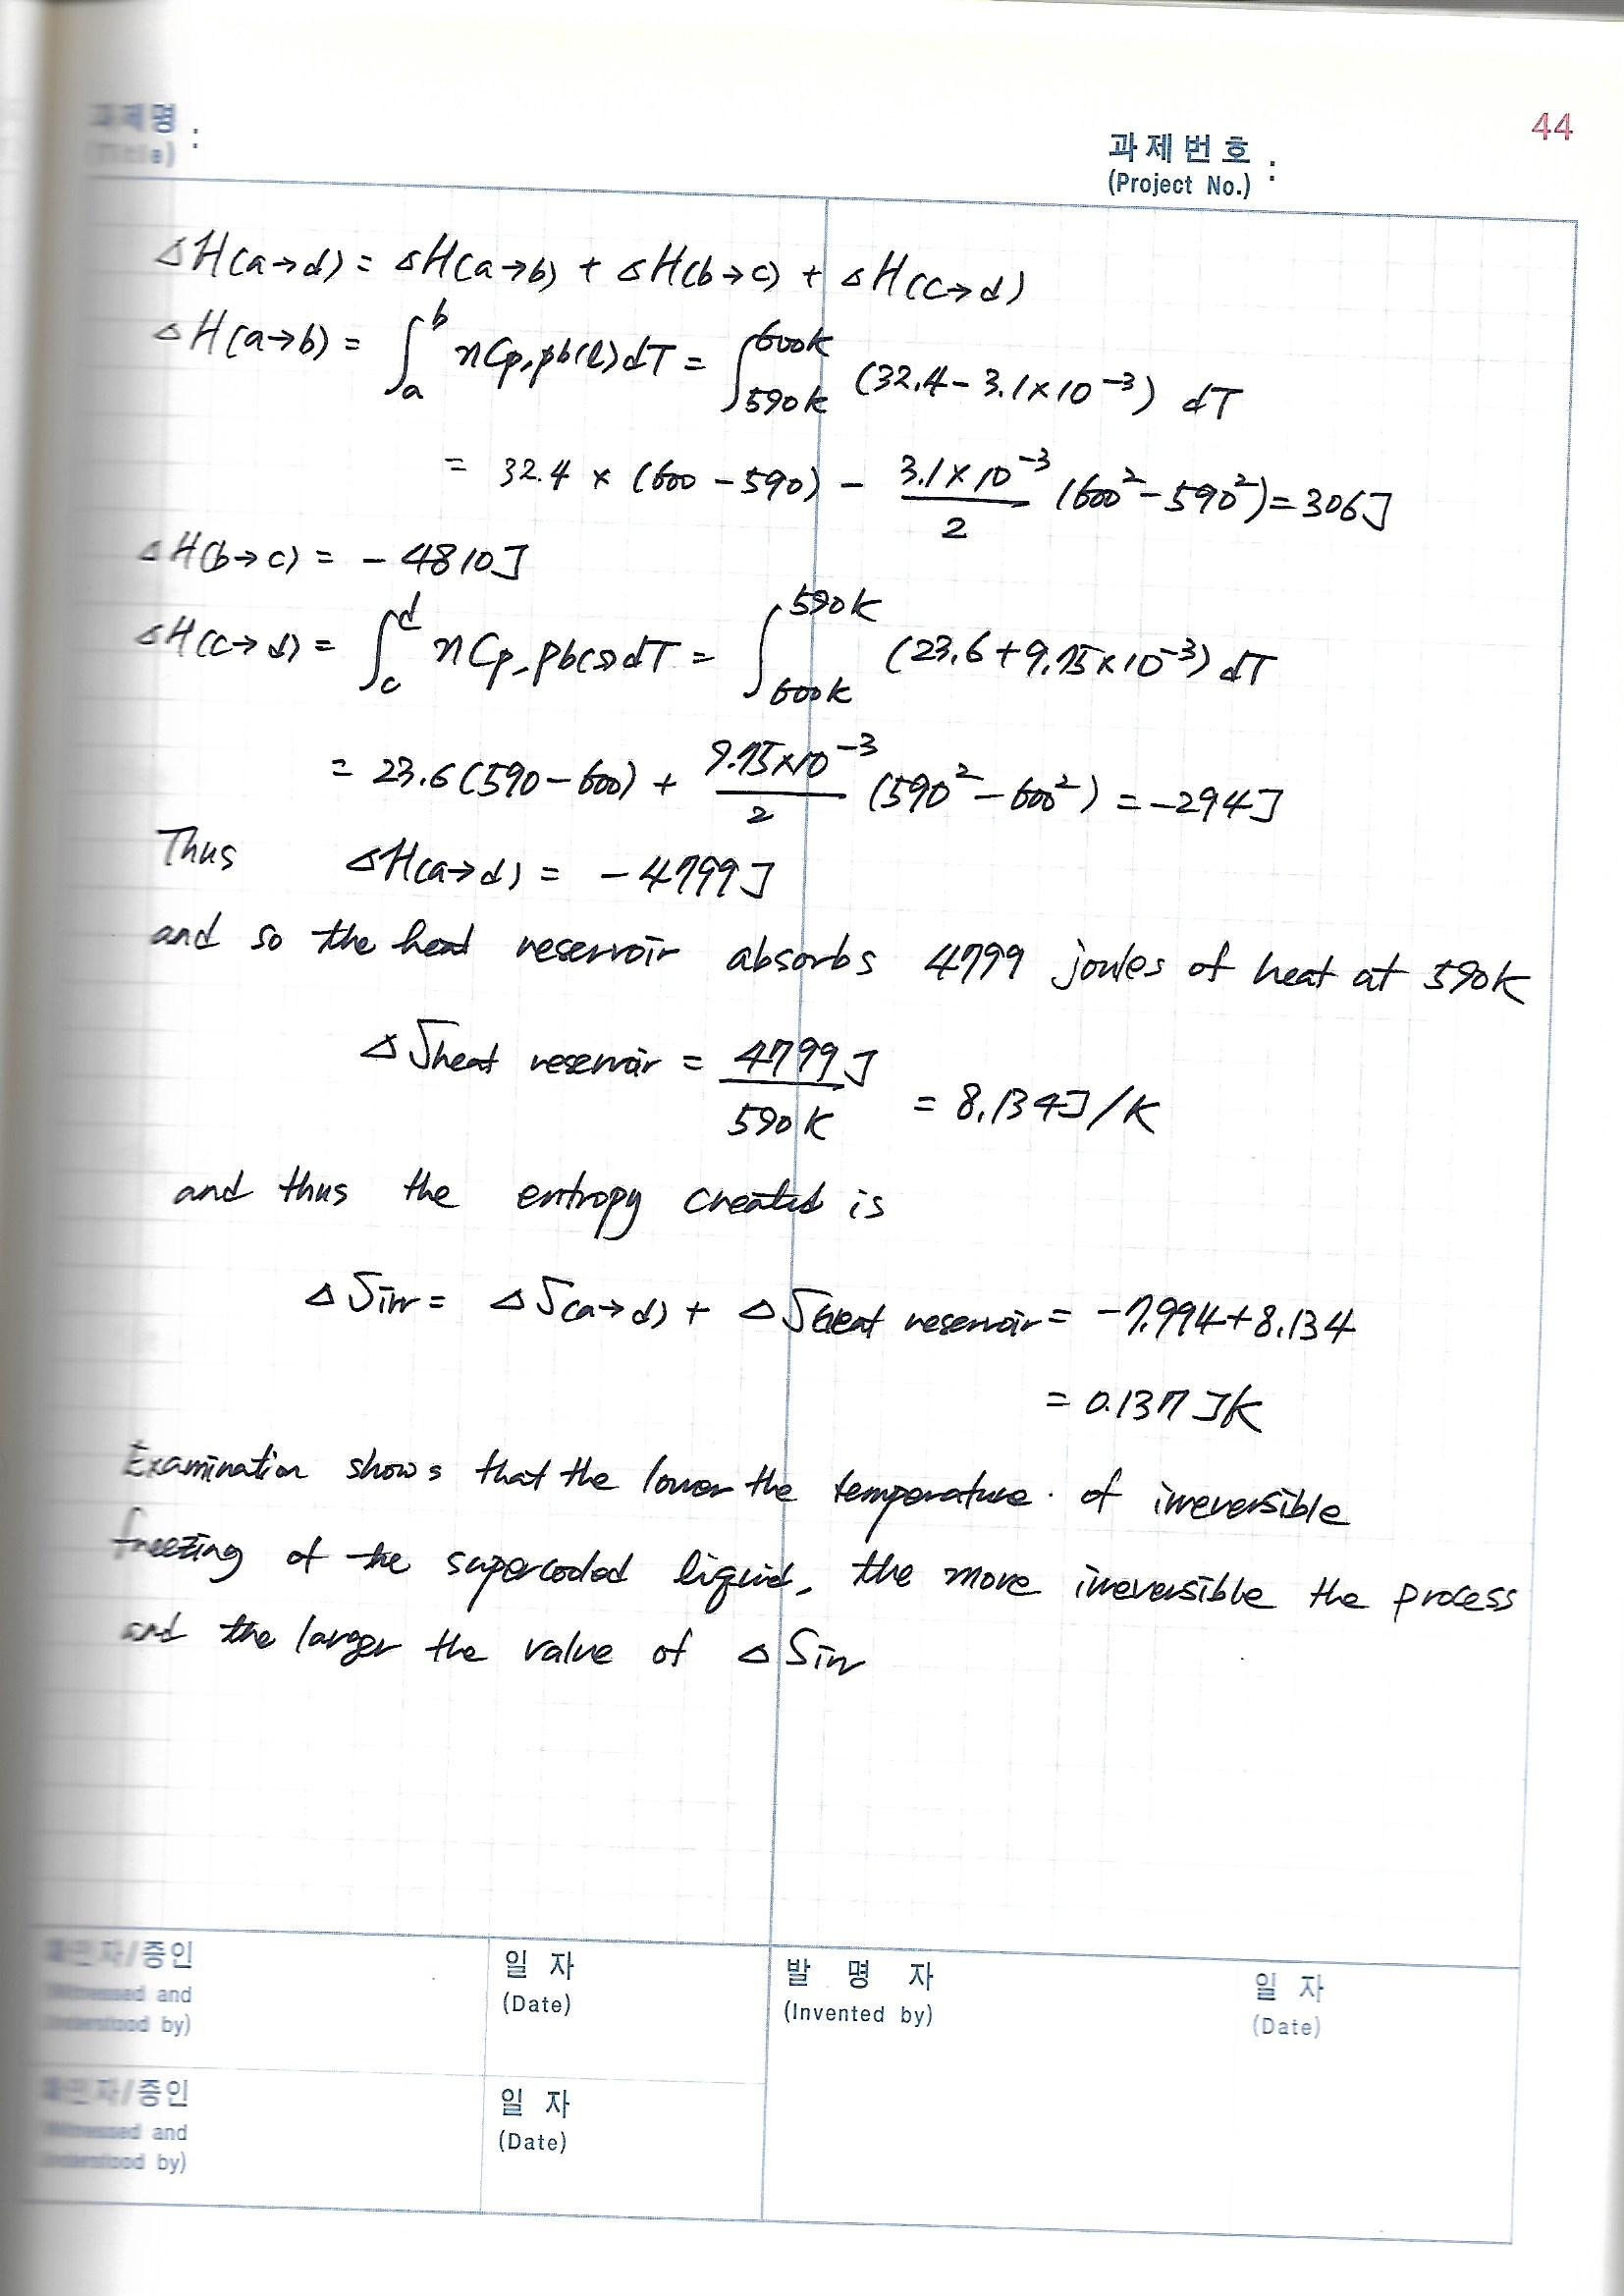 44
과제명 :
(Title)
과제번호 :
(Project No.)
ΔH(a→d) = ΔH(a→b) + ΔH(b→c) + ΔH(c→d)
ΔH(a→b) = ∫_a^b nCp,pb(l)dT = ∫_590K^600K (32.4 - 3.1×10^-3) dT
= 32.4 × (600 - 590) - 3.1×10^-3/2 (600^2 - 590^2) = 306J
ΔH(b→c) = - 4810J
ΔH(c→d) = ∫_c^d nCp,pb(s)dT = ∫_600K^590K (23.6 + 9.75×10^-3) dT
= 23.6(590 - 600) + 9.75×10^-3/2 (590^2 - 600^2) = -294J
Thus ΔH(a→d) = - 4799J
and so the heat reservoir absorbs 4799 joules of heat at 590K
ΔSheat reservoir = 4799J/590K = 8.134J/K
and thus the entropy created is
ΔSirr = ΔS(a→d) + ΔSheat reservoir = -7.994+8.134
= 0.137 JK
Examination shows that the lower the temperature. of irreversible
freezing of the supercooled liquid, the more irreversible the process
and the larger the value of ΔSirr
확인자/증인
(Witnessed and
Understood by)
일 자
(Date)
발 명 자
(Invented by)
일 자
(Date)
확인자/증인
(Witnessed and
Understood by)
일 자
(Date)